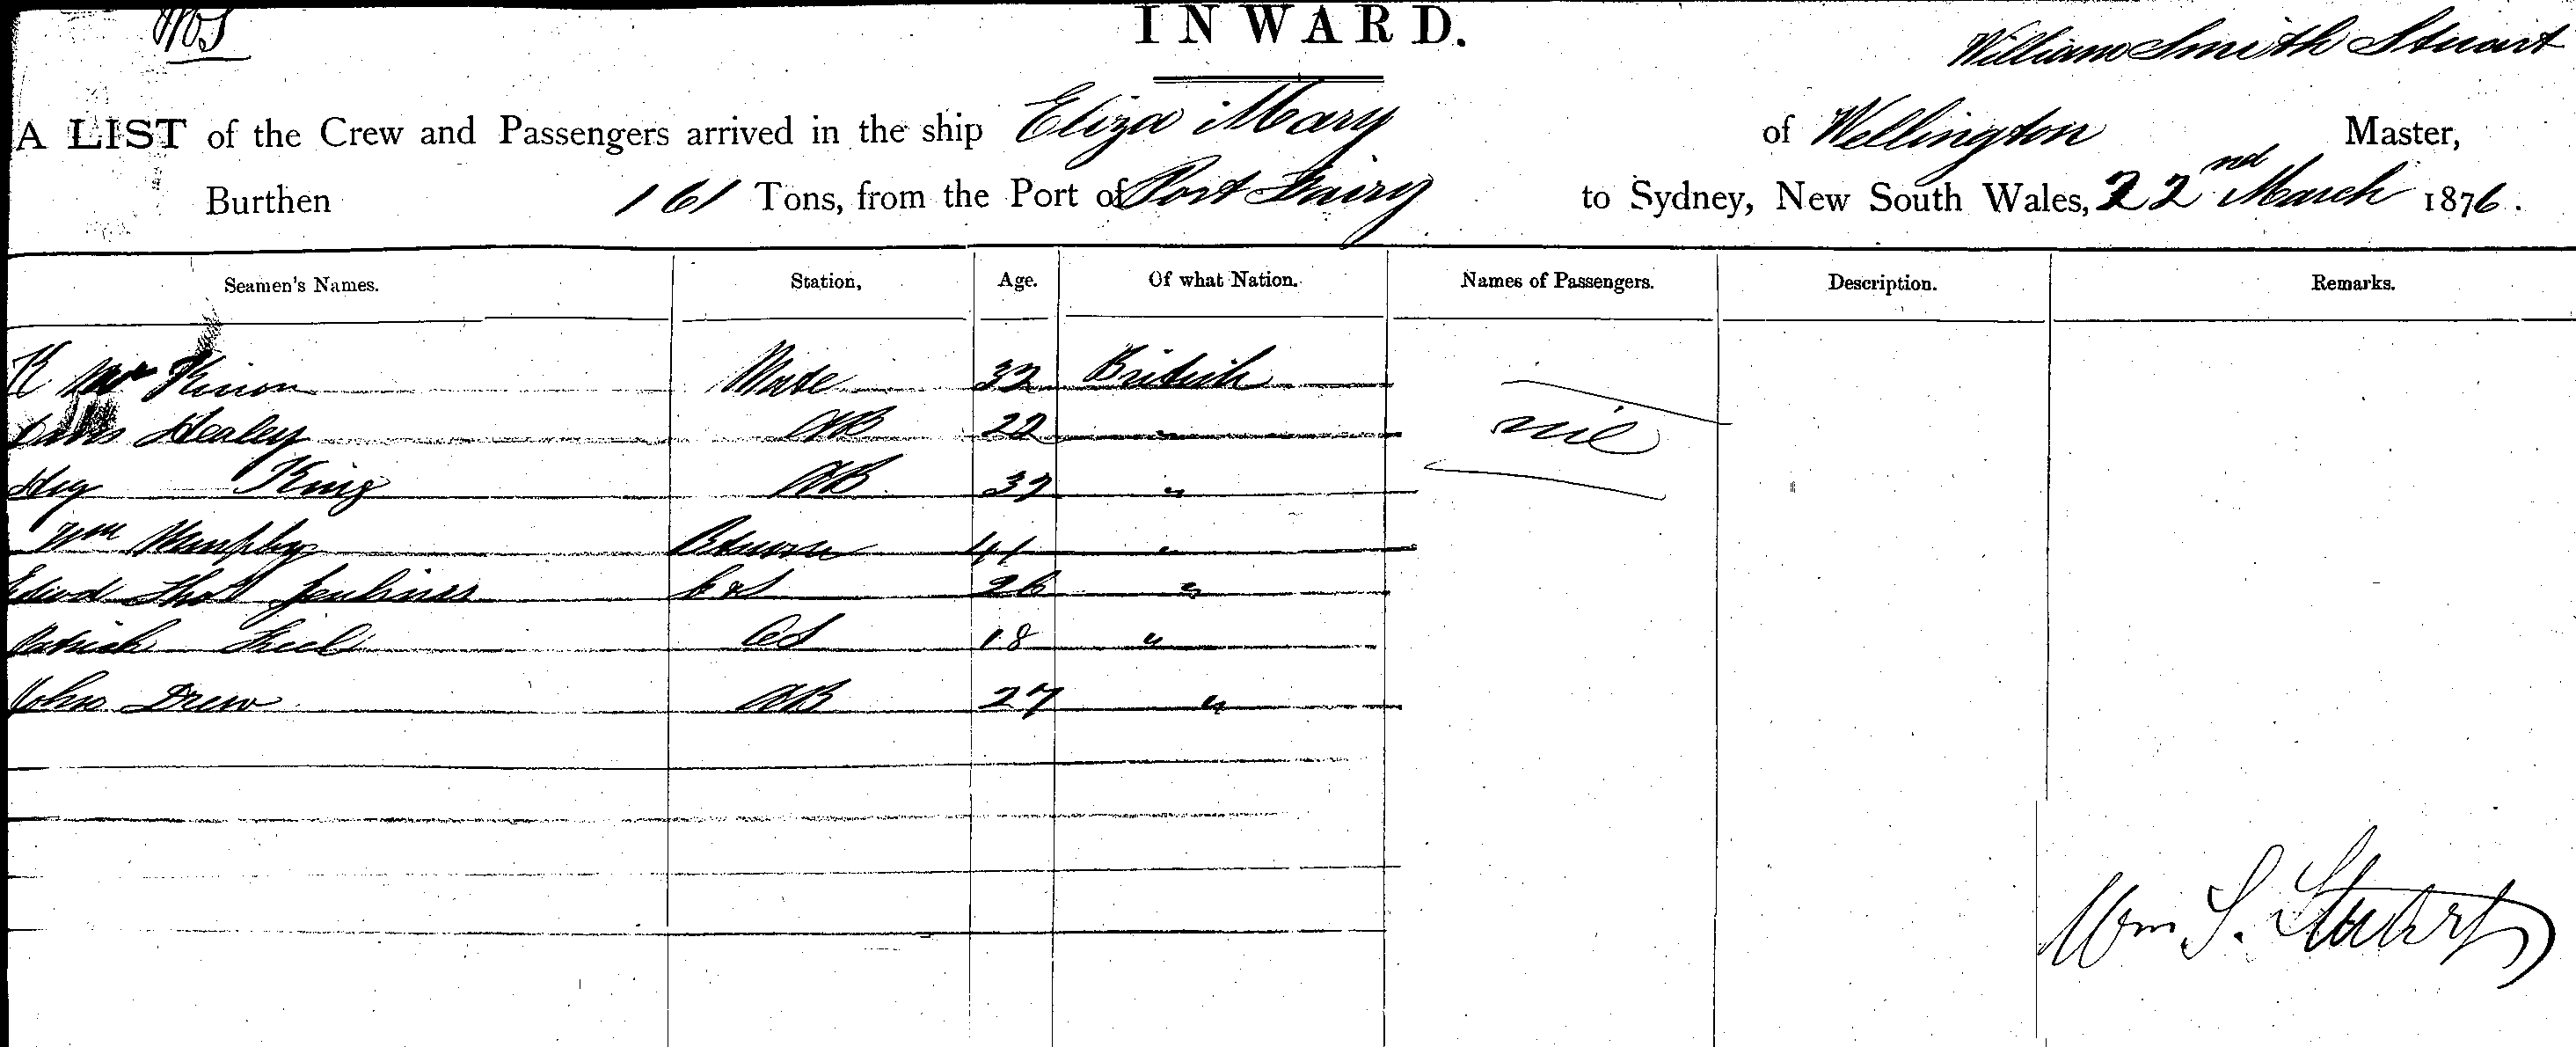 INWARD.
William Smith Stuart
A LIST of the Crew and Passengers arrived in the ship Eliza Mary of Wellington Master,
Burthen 161 Tons, from the Port of Port Fairy to Sydney, New South Wales, 22nd March 1876.
Seamen's Names. Station, Age. Of what Nation. Names of Passengers. Description. Remarks.
K Mc Kinon Mate 32 British
Healey AB 22 " nil
Hy King AB 32 "
Wm Murphy 41 "
Edwd Thos Jenkines 26 "
Patrick OS 18 "
John Drew AB 27 "
Wm S. Stuart